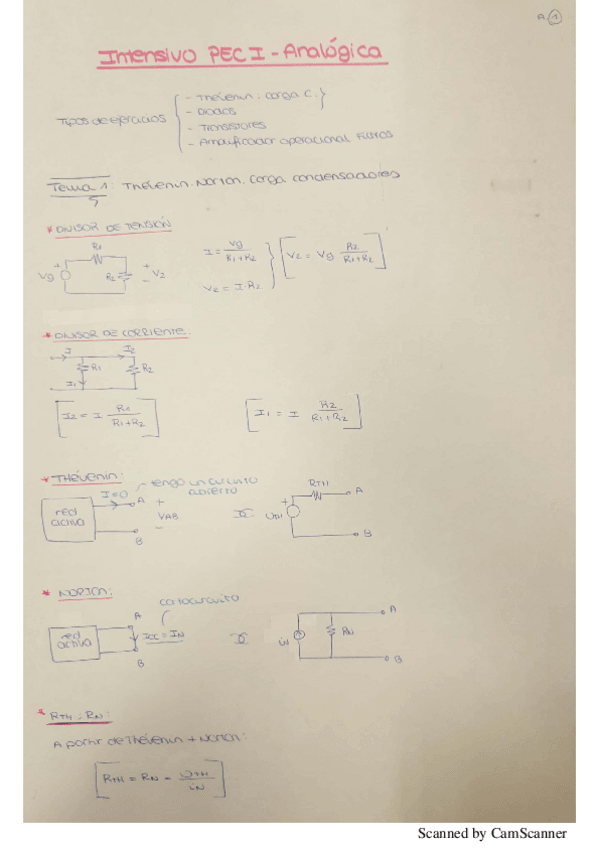 A 1
Intensivo PEC I - Analógica
Tipos de ejercicios
- Thévenin. carga C.
- Diodos
- Transistores
- Amplificador operacional. Filtros
Tema 1: Thévenin. Norton. Carga condensadores
* DIVISOR DE TENSIÓN
R1
Vg
+
R2
+
-
V2
I = Vg / R1+R2
V2 = I·R2
V2 = Vg R2 / R1+R2
* DIVISOR DE CORRIENTE.
I
I2
R1
R2
I1
I2 = I R1 / R1+R2
I1 = I R2 / R1+R2
* THÉVENIN:
I=0
tengo un circuito
abierto
red
activa
A
+
VAB
-
B
RTH
+
UTH
A
B
* NORTON:
cortocircuito
red
activa
A
ICC = IN
B
iN
RN
A
B
* RTH = RN:
A partir de Thévenin + Norton:
RTH = RN = UTH / iN
Scanned by CamScanner